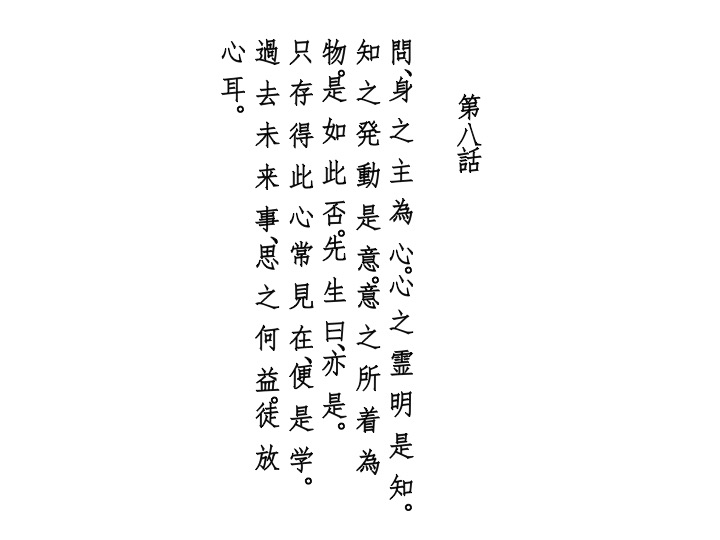 第八話
問、身之主為心。心之霊明是知。
知之発動是意。意之所着為
物。是如此否。先生曰、亦是。
只存得此心常見在、便是学。
過去未来事、思之何益。徒放
心耳。